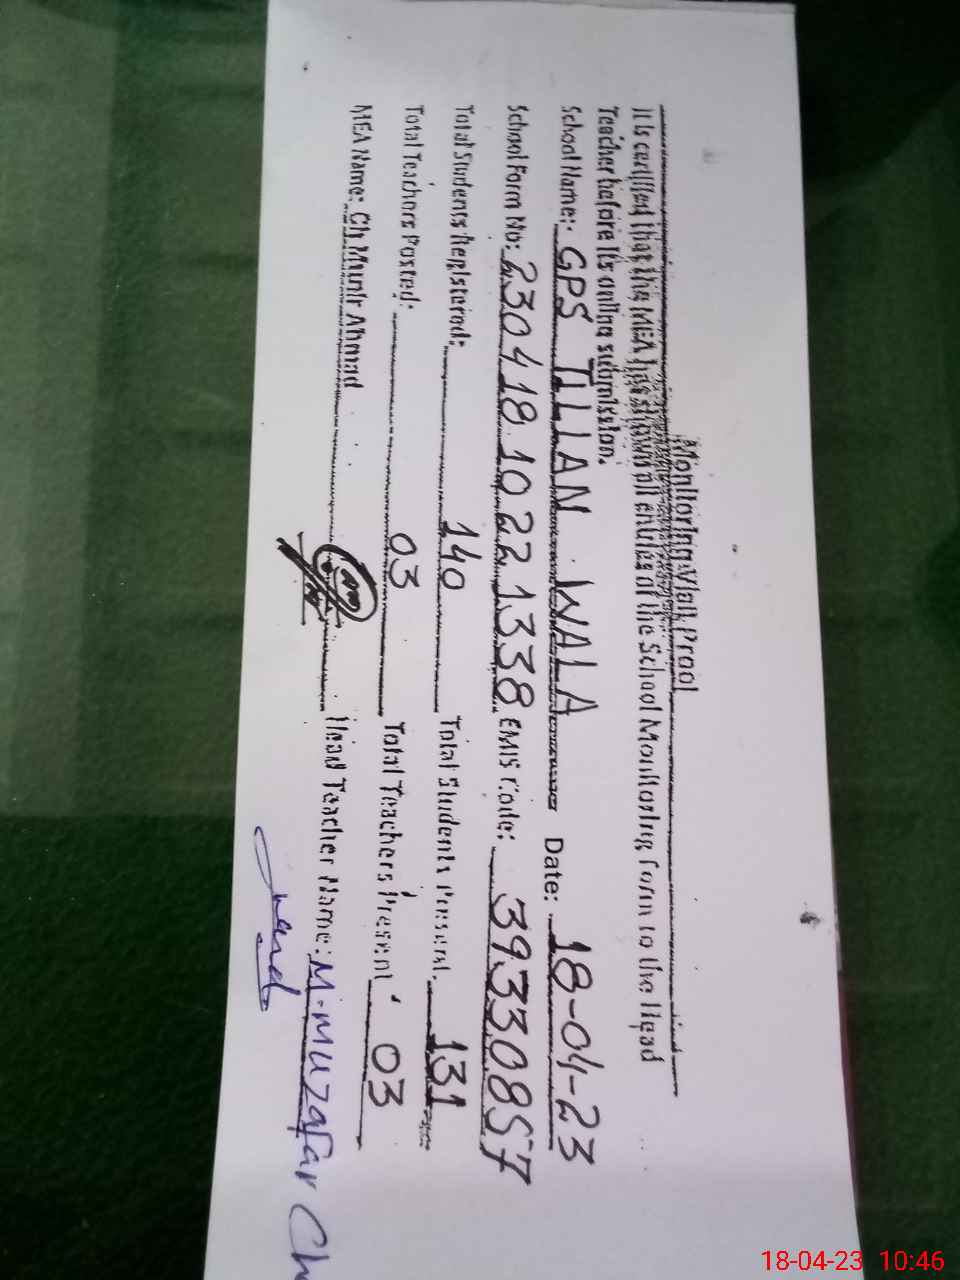 Monitoring Visit Proof
It is certified that the MEA has shown all entries of the School Monitoring Form to the Head
Teacher before its online submission.
School Name: GPS TLIAN WALA Date: 18-04-23
School Form No: 230418 1022 1338 EMIS Code: 39330857
Total Students Registered: 140 Total Students Present: 131
Total Teachers Posted: 03 Total Teachers Present 03
MEA Name: Ch Munir Ahmad Head Teacher Name: M. muzafar Ch
18-04-23 10:46